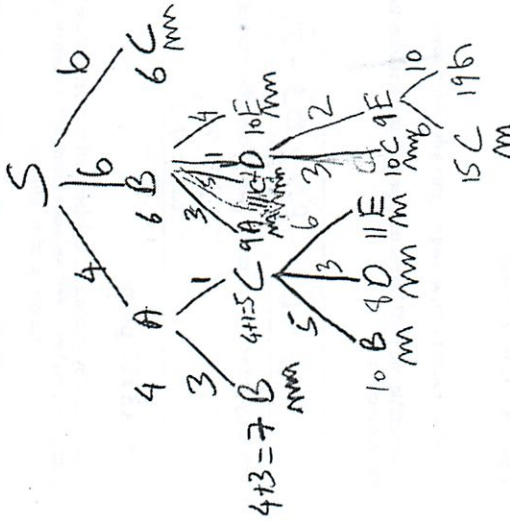 S
4 6 6
A B C
4 6 6
3 1 3 5 1 4
4+3=7 B 4+1=5 C 9A 11C D 10E
5 3 6 3 2
10 B 8 D 11 E 10C 9E
6 10
15 C 19